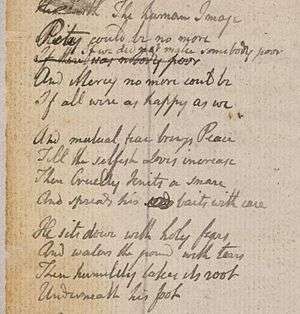 The human Image
Pity could be no more
If we did not make somebody poor
If there was nobody poor
And Mercy no more could be
If all were as happy as we
And mutual fear brings Peace
Till the selfish Loves increase
Then Cruelty knits a snare
And spreads his baits with care
He sits down with holy fears
And waters the ground with tears
Then humility takes its root
Underneath his foot